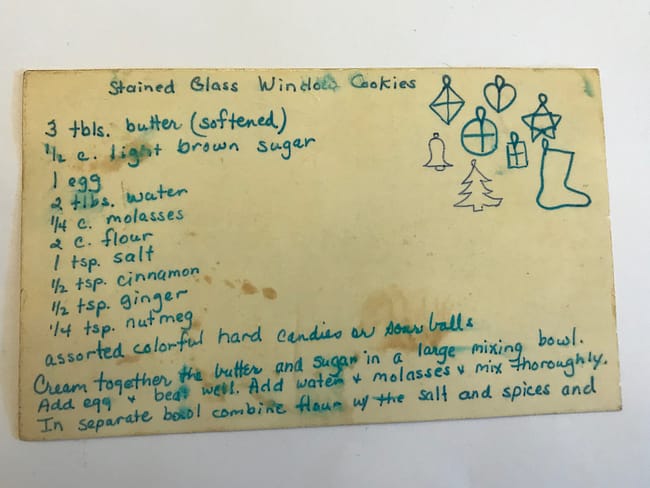 Stained Glass Window Cookies
3 tbls. butter (softened)
1/2 c. light brown sugar
1 egg
2 tlbs. water
1/4 c. molasses
2 c. flour
1 tsp. salt
1/2 tsp. cinnamon
1/2 tsp. ginger
1/4 tsp. nutmeg
assorted colorful hard candies or sour balls
Cream together the butter and sugar in a large mixing bowl.
Add egg + beat well. Add water + molasses + mix thoroughly.
In separate bowl combine flour w/ the salt and spices and